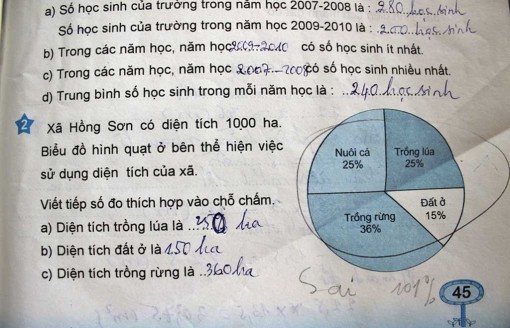 a) Số học sinh của trường trong năm học 2007-2008 là : 280 học sinh
Số học sinh của trường trong năm học 2009-2010 là : 200 học sinh
b) Trong các năm học, năm học 2009-2010 có số học sinh ít nhất.
c) Trong các năm học, năm học 2007-2008 có số học sinh nhiều nhất.
d) Trung bình số học sinh trong mỗi năm học là : 240 học sinh
2 Xã Hồng Sơn có diện tích 1000 ha.
Biểu đồ hình quạt ở bên thể hiện việc
sử dụng diện tích của xã.
Viết tiếp số đo thích hợp vào chỗ chấm.
a) Diện tích trồng lúa là ...250 ha
b) Diện tích đất ở là 150 ha
c) Diện tích trồng rừng là ..360 ha
Nuôi cá
25%
Trồng lúa
25%
Đất ở
15%
Trồng rừng
36%
Sai 101%
45